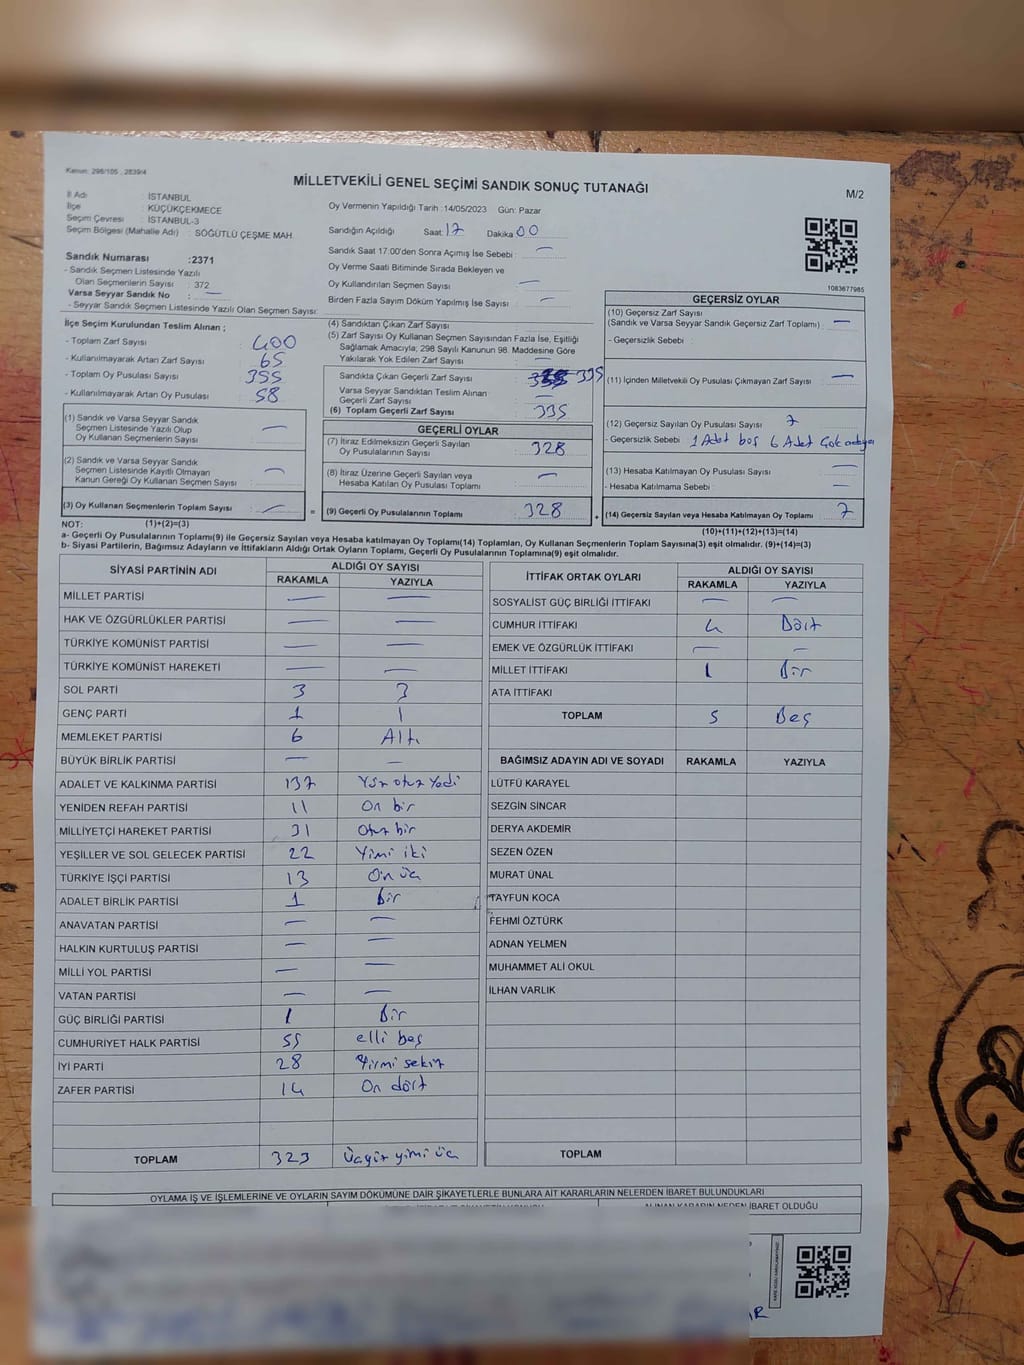 Kanun: 298/105 , 2839/4
MİLLETVEKİLİ GENEL SEÇİMİ SANDIK SONUÇ TUTANAĞI
M/2
İl Adı : İSTANBUL
İlçe : KÜÇÜKÇEKMECE
Seçim Çevresi : İSTANBUL-3
Seçim Bölgesi (Mahalle Adı) : SÖĞÜTLÜ ÇEŞME MAH.
Sandık Numarası :2371
- Sandık Seçmen Listesinde Yazılı
Olan Seçmenlerin Sayısı : 372
Varsa Seyyar Sandık No : —
- Seyyar Sandık Seçmen Listesinde Yazılı Olan Seçmen Sayısı:
Oy Vermenin Yapıldığı Tarih :14/05/2023 Gün: Pazar
Sandığın Açıldığı Saat: 17 Dakika 00
Sandık Saat 17:00'den Sonra Açımış İse Sebebi : —
Oy Verme Saati Bitiminde Sırada Bekleyen ve
Oy Kullandırılan Seçmen Sayısı : —
Birden Fazla Sayım Döküm Yapılmış İse Sayısı : —
1083677985
İlçe Seçim Kurulundan Teslim Alınan ;
- Toplam Zarf Sayısı : 400
- Kullanılmayarak Artan Zarf Sayısı : 65
- Toplam Oy Pusulası Sayısı : 355
- Kullanılmayarak Artan Oy Pusulası : 58
(1) Sandık ve Varsa Seyyar Sandık
Seçmen Listesinde Yazılı Olup
Oy Kullanan Seçmenlerin Sayısı : —
(2) Sandık ve Varsa Seyyar Sandık
Seçmen Listesinde Kayıtlı Olmayan
Kanun Gereği Oy Kullanan Seçmen Sayısı : —
(3) Oy Kullanan Seçmenlerin Toplam Sayısı : —
(4) Sandıktan Çıkan Zarf Sayısı :
(5) Zarf Sayısı Oy Kullanan Seçmen Sayısından Fazla İse, Eşitliği
Sağlamak Amacıyla; 298 Sayılı Kanunun 98. Maddesine Göre
Yakılarak Yok Edilen Zarf Sayısı : —
Sandıkta Çıkan Geçerli Zarf Sayısı : 335
Varsa Seyyar Sandıktan Teslim Alınan
Geçerli Zarf Sayısı : —
(6) Toplam Geçerli Zarf Sayısı : 335
GEÇERLİ OYLAR
(7) İtiraz Edilmeksizin Geçerli Sayılan
Oy Pusulalarının Sayısı : 328
(8) İtiraz Üzerine Geçerli Sayılan veya
Hesaba Katılan Oy Pusulası Toplamı : —
= (9) Geçerli Oy Pusulalarının Toplamı : 328
GEÇERSİZ OYLAR
(10) Geçersiz Zarf Sayısı
(Sandık ve Varsa Seyyar Sandık Geçersiz Zarf Toplamı) : —
- Geçersizlik Sebebi :
(11) İçinden Milletvekili Oy Pusulası Çıkmayan Zarf Sayısı : —
(12) Geçersiz Sayılan Oy Pusulası Sayısı : 7
- Geçersizlik Sebebi : 1 Adet boş 6 Adet
(13) Hesaba Katılmayan Oy Pusulası Sayısı : —
- Hesaba Katılmama Sebebi : —
+ (14) Geçersiz Sayılan veya Hesaba Katılmayan Oy Toplamı : 7
NOT: (1)+(2)=(3)
(10)+(11)+(12)+(13)=(14)
a- Geçerli Oy Pusulalarının Toplamı(9) ile Geçersiz Sayılan veya Hesaba katılmayan Oy Toplamı(14) Toplamları, Oy Kullanan Seçmenlerin Toplam Sayısına(3) eşit olmalıdır. (9)+(14)=(3)
b- Siyasi Partilerin, Bağımsız Adayların ve İttifakların Aldığı Ortak Oyların Toplamı, Geçerli Oy Pusulalarının Toplamına(9) eşit olmalıdır.
SİYASİ PARTİNİN ADI ALDIĞI OY SAYISI
RAKAMLA YAZIYLA
MİLLET PARTİSİ — —
HAK VE ÖZGÜRLÜKLER PARTİSİ — —
TÜRKİYE KOMÜNİST PARTİSİ — —
TÜRKİYE KOMÜNİST HAREKETİ — —
SOL PARTİ 3 3
GENÇ PARTİ 1 1
MEMLEKET PARTİSİ 6 Altı
BÜYÜK BİRLİK PARTİSİ — —
ADALET VE KALKINMA PARTİSİ 137 Yüz otuz yedi
YENİDEN REFAH PARTİSİ 11 On bir
MİLLİYETÇİ HAREKET PARTİSİ 31 Otuz bir
YEŞİLLER VE SOL GELECEK PARTİSİ 22 Yimi iki
TÜRKİYE İŞÇİ PARTİSİ 13 On üç
ADALET BİRLİK PARTİSİ 1 Bir
ANAVATAN PARTİSİ — —
HALKIN KURTULUŞ PARTİSİ — —
MİLLİ YOL PARTİSİ — —
VATAN PARTİSİ — —
GÜÇ BİRLİĞİ PARTİSİ 1 Bir
CUMHURİYET HALK PARTİSİ 55 elli beş
İYİ PARTİ 28 Yirmi sekiz
ZAFER PARTİSİ 14 On dört
TOPLAM 323 Üçyüz yimi üç
İTTİFAK ORTAK OYLARI ALDIĞI OY SAYISI
RAKAMLA YAZIYLA
SOSYALİST GÜÇ BİRLİĞİ İTTİFAKI — —
CUMHUR İTTİFAKI 4 Dört
EMEK VE ÖZGÜRLÜK İTTİFAKI — —
MİLLET İTTİFAKI 1 Bir
ATA İTTİFAKI
TOPLAM 5 Beş
BAĞIMSIZ ADAYIN ADI VE SOYADI RAKAMLA YAZIYLA
LÜTFÜ KARAYEL
SEZGİN SİNCAR
DERYA AKDEMİR
SEZEN ÖZEN
MURAT ÜNAL
TAYFUN KOCA
FEHMİ ÖZTÜRK
ADNAN YELMEN
MUHAMMET ALİ OKUL
İLHAN VARLIK
TOPLAM
OYLAMA İŞ VE İŞLEMLERİNE VE OYLARIN SAYIM DÖKÜMÜNE DAİR ŞİKAYETLERLE BUNLARA AİT KARARLARIN NELERDEN İBARET BULUNDUKLARI
ALINAN KARARIN NEDEN İBARET OLDUĞU